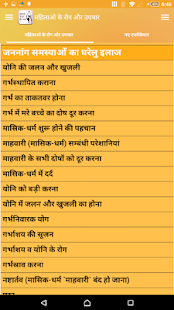 महिलाओ के रोग और उपचार
महिलाओ के रोग और उपचार
नए एप्लीकेशन
जननांग समस्याओं का घरेलु इलाज
योनि की जलन और खुजली
गर्भस्थापित कराना
गर्भ का ताकतवर होना
गर्भ में मरे बच्चे का दोष दूर करना
मासिक-धर्म शुरू होने की पहचान
माहवारी (मासिक-धर्म) सम्बंधी परेशानियां
माहवारी के सभी दोषों को दूर करना
मासिक-धर्म में दर्द
योनि को बड़ी करना
योनि में जलन और खुजली का होना
गर्भनिवारक योग
गर्भाशय की सूजन
गर्भाशय व योनि के रोग
गर्भस्राव करना
नष्टार्तव (मासिक-धर्म `माहवारी` बंद हो जाना)